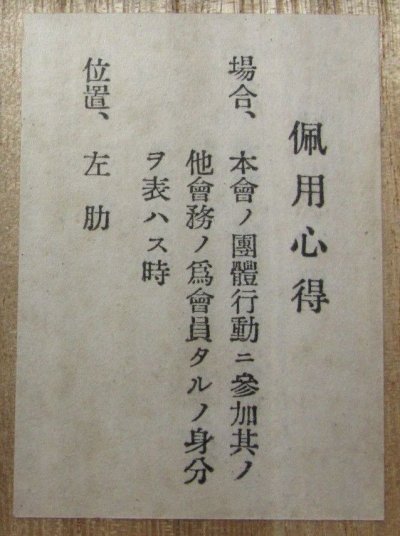 佩用心得
場合、本會ノ團體行動ニ參加其ノ
他會務ノ爲會員タルノ身分
ヲ表ハス時
位置、左肋